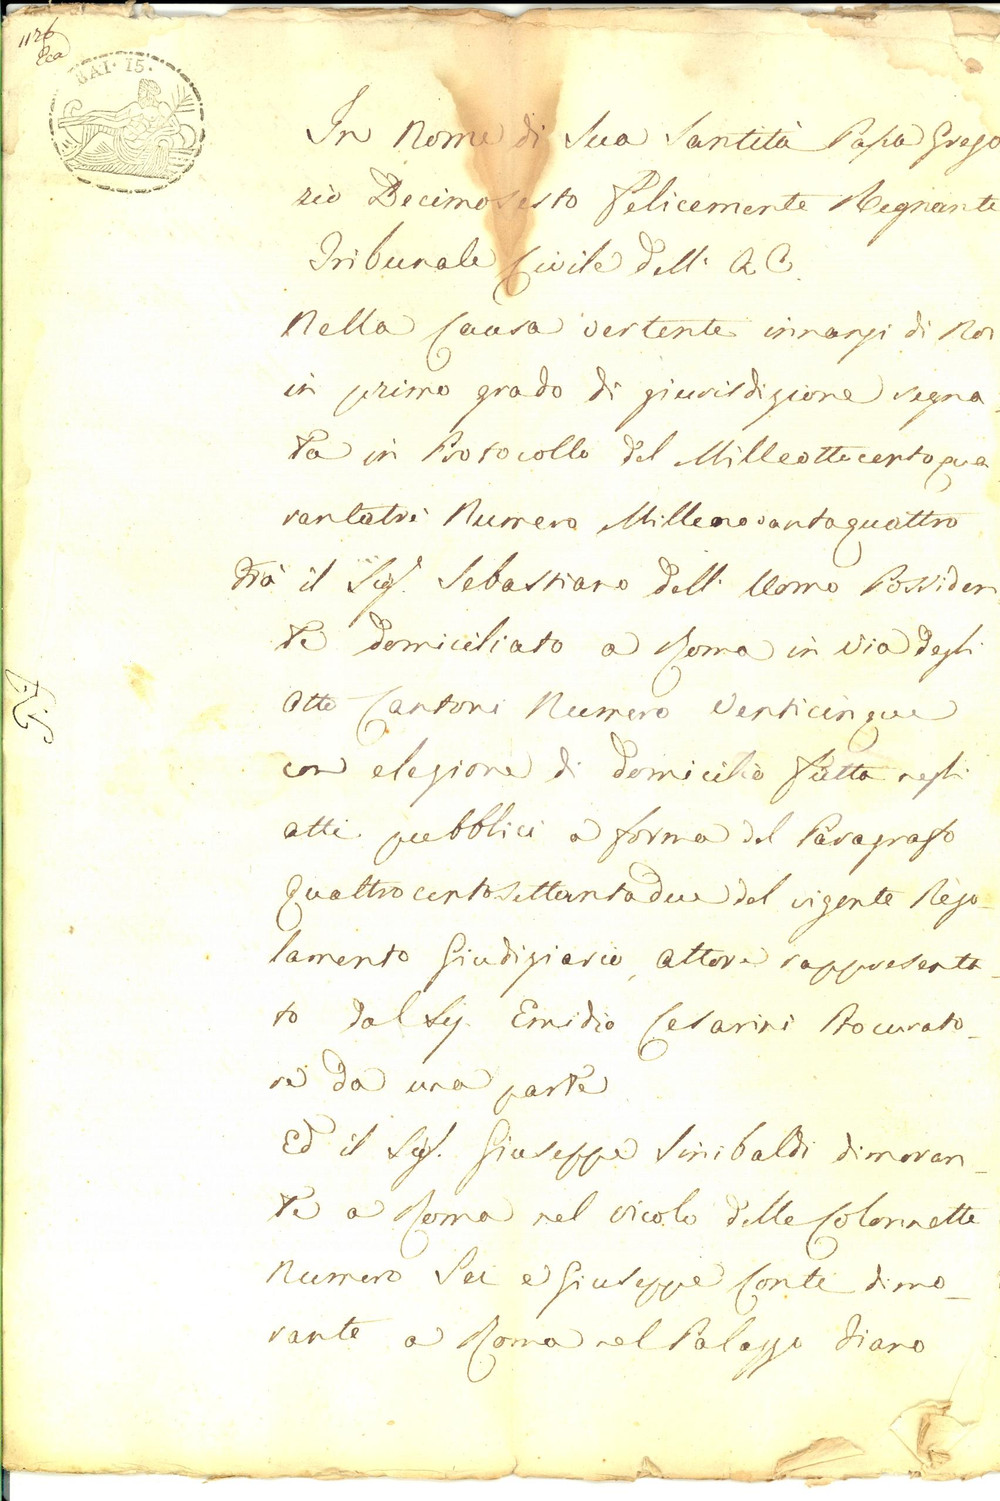 1126
BAI. 15.
In Nome di Sua Santità Papa Grego
rio Decimosesto felicemente Regnante
Tribunale Civile dell' A. C.
Nella Causa vertente innanzi di Noi
in primo grado di giurisdizione segna-
ta in Protocollo del Milleottocentoqua
rantatrè Numero Millenovantaquattro
Trà il Sig. Sebastiano Dell' Uomo Possiden
te domiciliato a Roma in via degli
Otto Cantoni Numero Venticinque
con elezione di domicilio fatta negli
atti pubblici a forma del Paragrafo
Quattrocentosettantadue del vigente Rego-
lamento Giudiziario, attore rappresenta-
to dal Sig. Emidio Cesarini Procurato-
re da una parte
Ed il Sig. Giuseppe Sinibaldi dimoran-
te a Roma nel vicolo delle Colonnette
Numero Sei e Giuseppe Conte dimo-
rante a Roma nel Palazzo Fiano